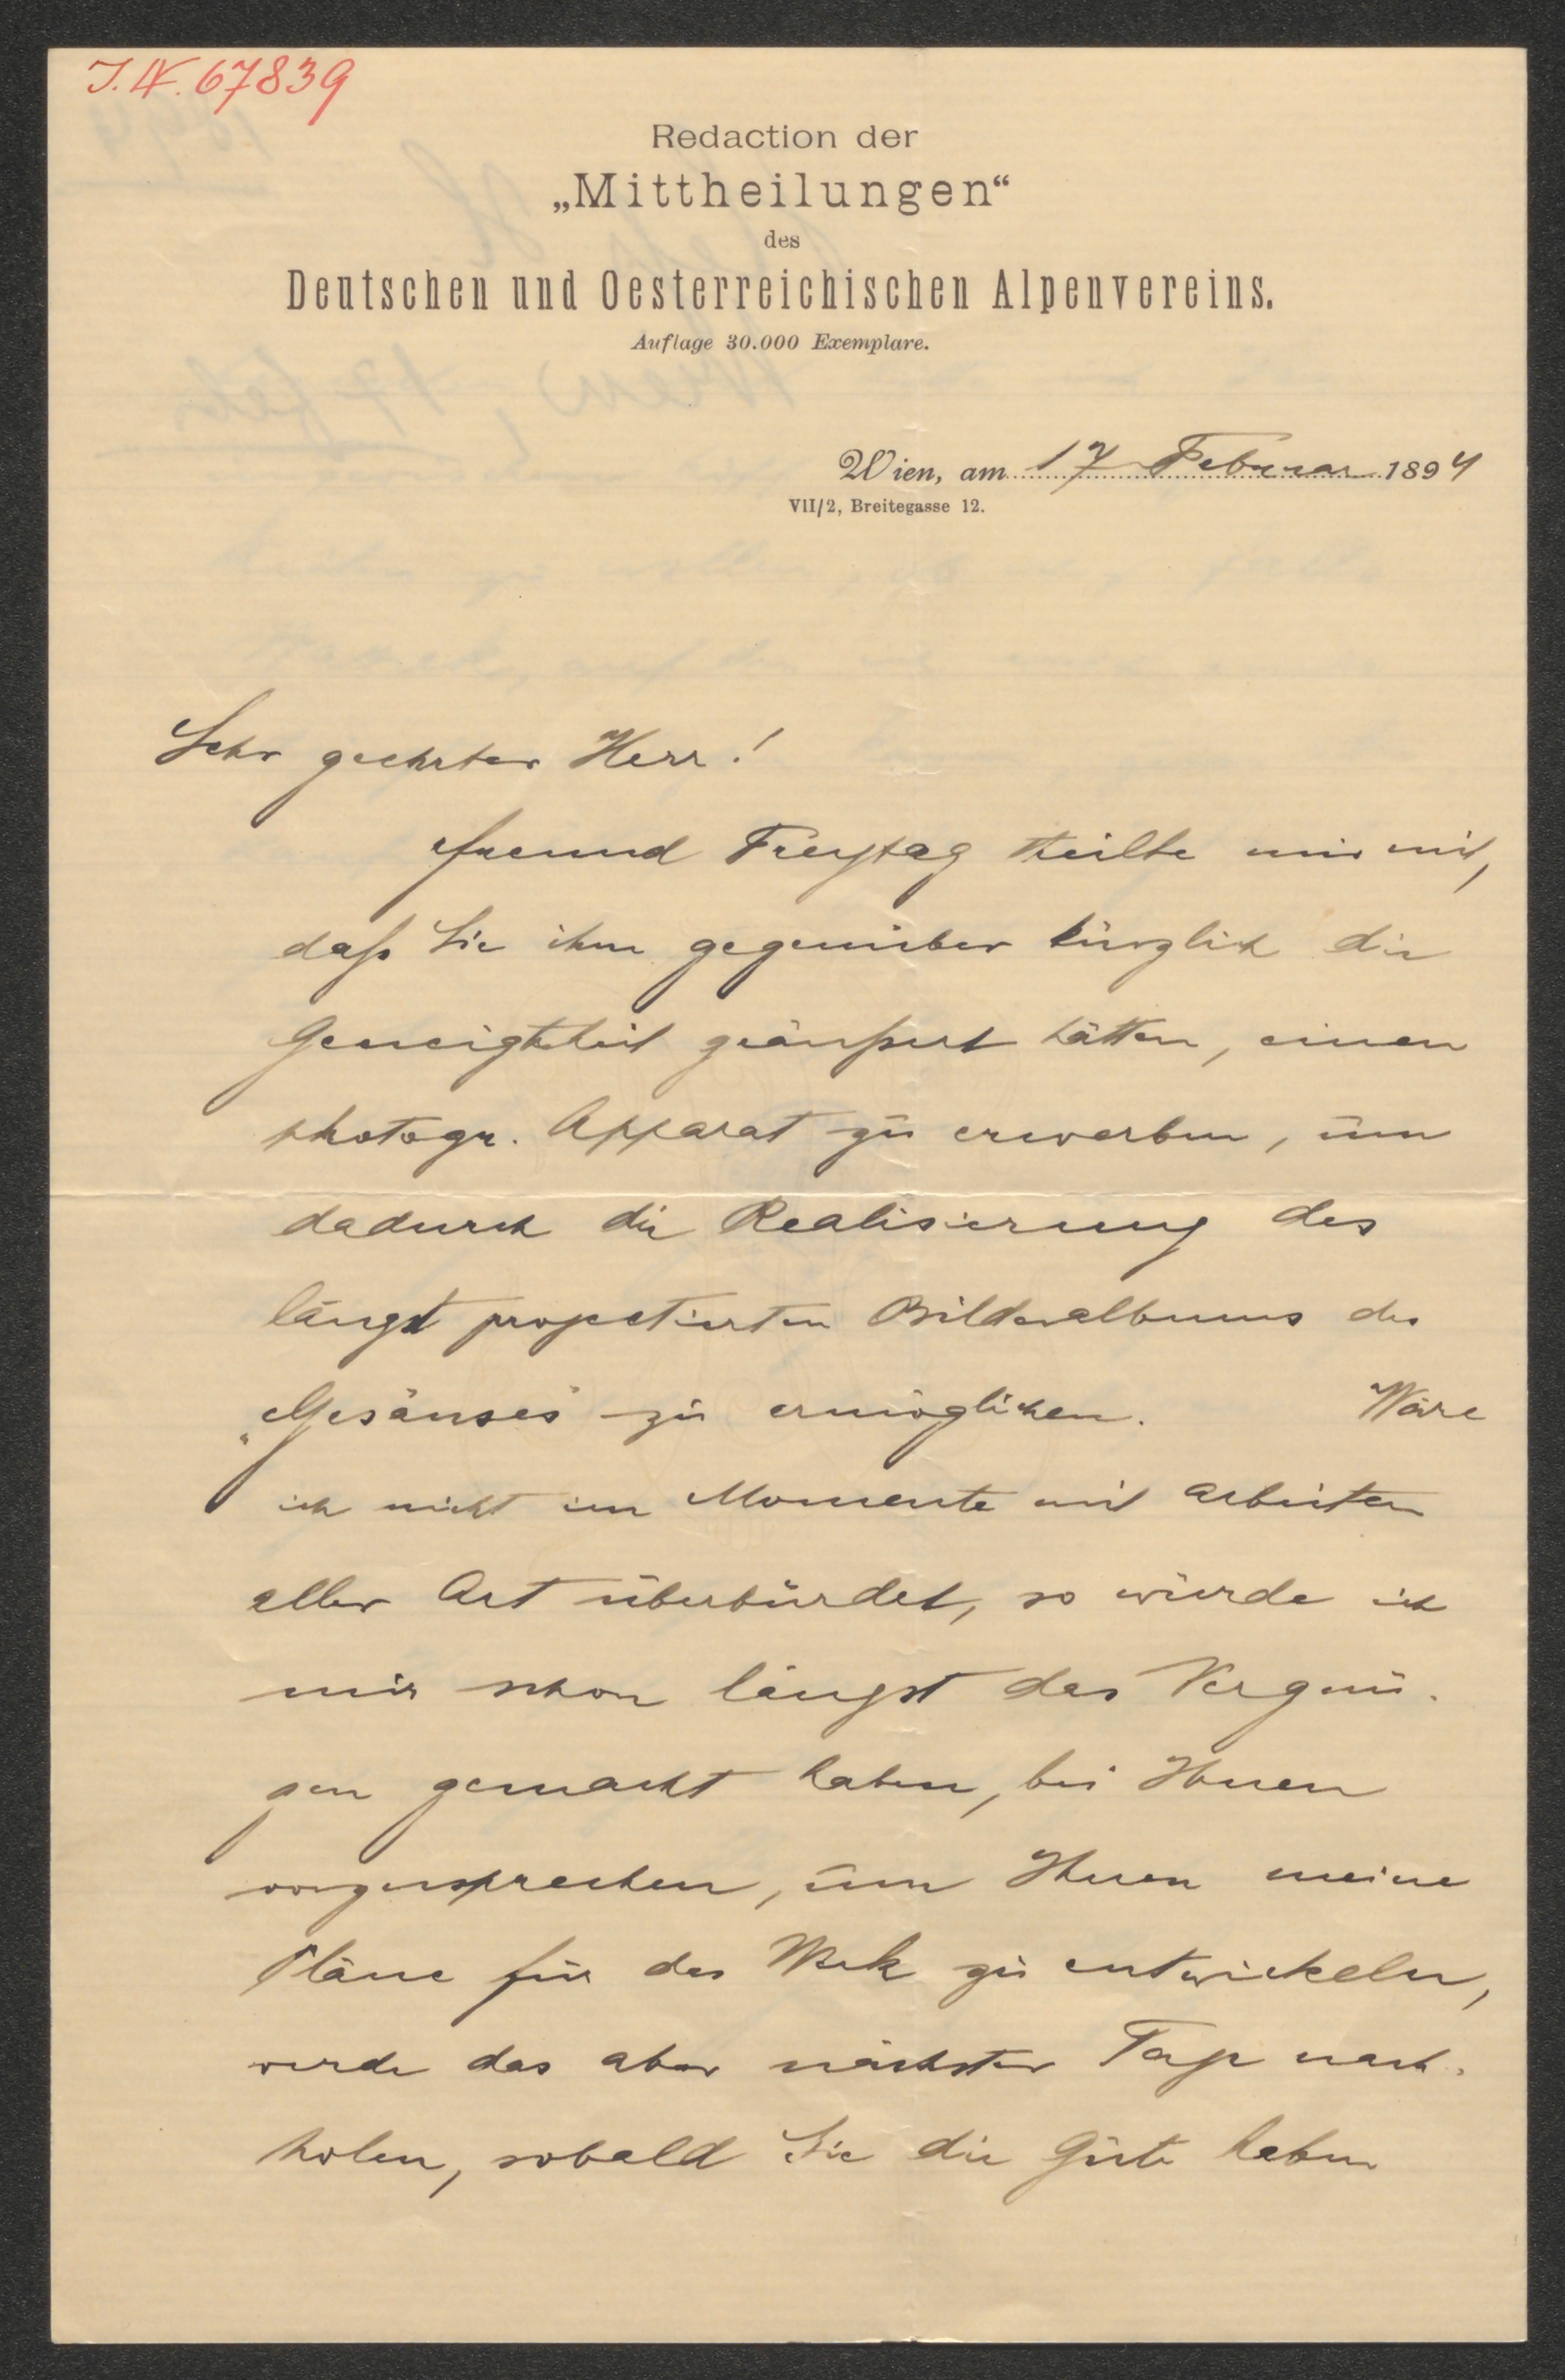 I.N. 67839
Redaction der
„Mittheilungen“
des
Deutschen und Oesterreichischen Alpenvereins.
Auflage 30.000 Exemplare.
Wien, am 17 Februar 1894
VII/2, Breitegasse 12.
Sehr geehrter Herr!
Freund Freytag theilte mir mit,
daß Sie ihm gegenüber kürzlich die
Geneigtheit geäußert hätten, einen
photogr. Apparat zu erwerben, um
dadurch die Realisierung des
längst projectierten Bilderalbums des
„Gesäuses“ zu ermöglichen. Wäre
ich nicht im Momente mit Arbeiten
aller Art überbürdet, so würde ich
mir schon längst das Vergnü-
gen gemacht haben, bei Ihnen
vorzusprechen, um Ihnen meine
Pläne für das Werk zu entwickeln,
werde das aber nächster Tage nach-
holen, sobald Sie die Güte haben